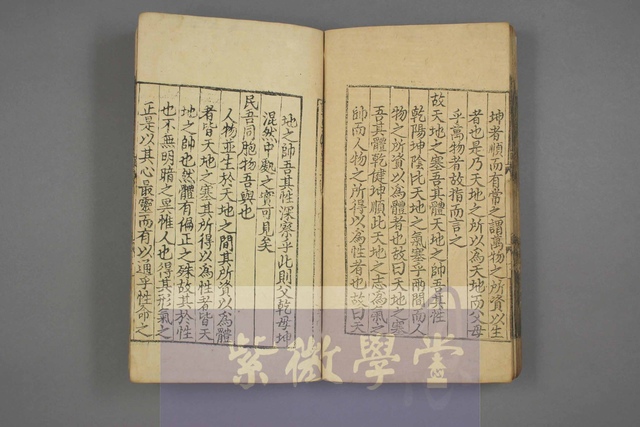 坤者順而有常之謂萬物之所資以生
者也是乃天地之所以為天地而父母
乎萬物者故指而言之
故天地之塞吾其體天地之帥吾其性
乾陽坤陰此天地之氣塞乎兩間而人
物之所資以為體者也故曰天地之塞
吾其體乾健坤順此天地之志為氣之
帥而人物之所得以為性者也故曰天
地之帥吾其性深察乎此則父乾母坤
混然中處之實可見矣
民吾同胞物吾與也
人物並生於天地之間其所資以為體
者皆天地之塞其所得以為性者皆天
地之帥也然體有偏正之殊故其於性
也不無明暗之異惟人也得其形氣之
正是以其心最靈而有以通乎性命之
紫微學堂